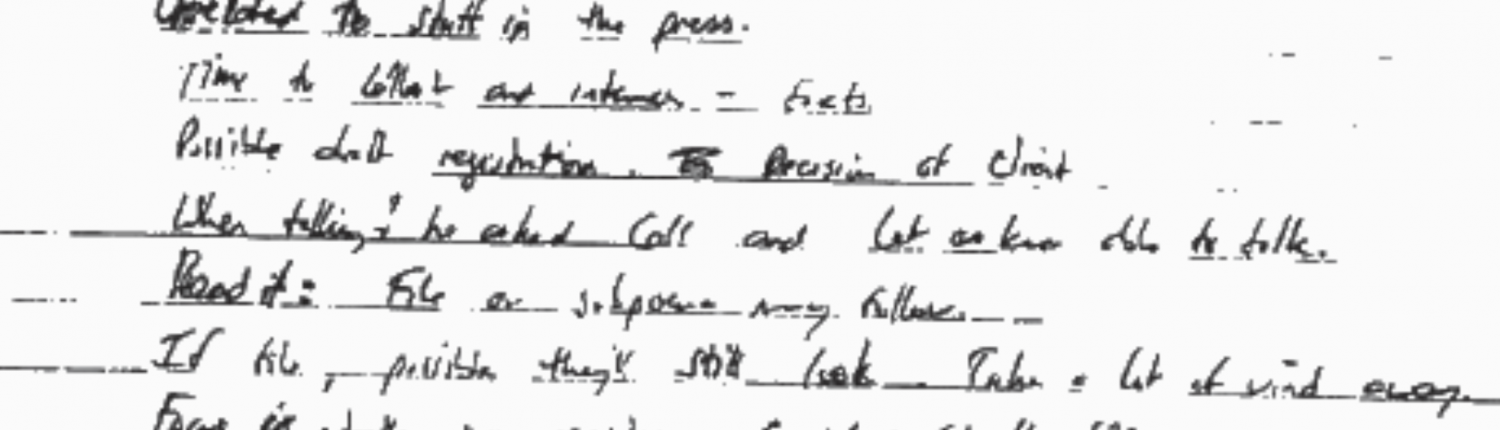 Unrelated to stuff in the press.
Time to collect and internal - facts
Possible draft registration. Decision of client
When talking, he asked call and let us know able to talk.
Read it: File or subpoena may follow.
If file, possible they'll still look. Takes a lot of wind away.
Focus is